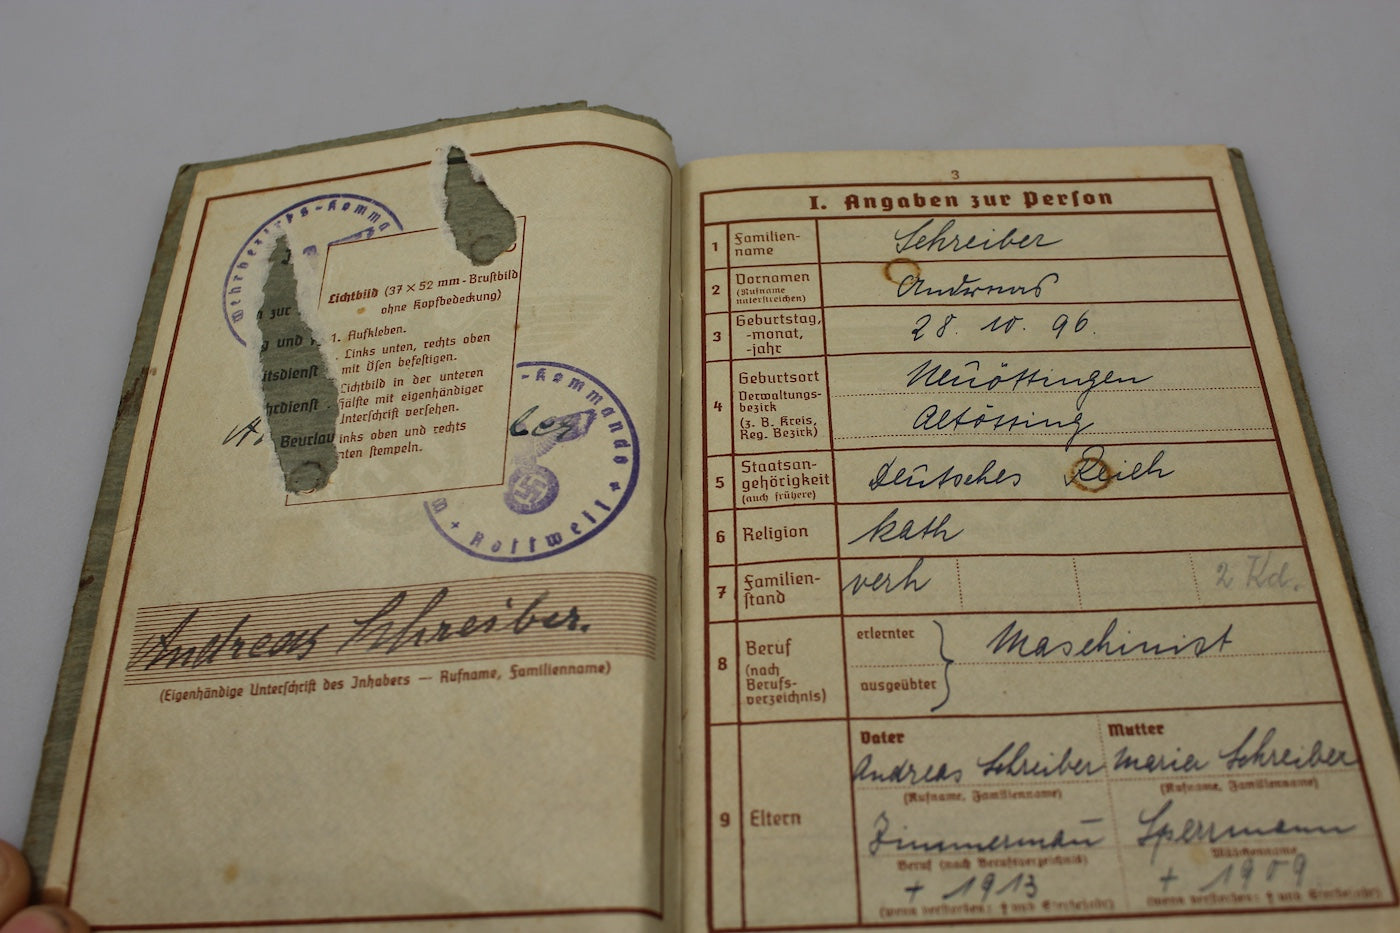 Wehrbezirks-Komma
n zur
Lichtbild (37 × 52 mm - Brustbild
ohne Kopfbedeckung)
1. Aufkleben.
g und
. Links unten, rechts oben
mit Ösen befestigen.
itsdienst
Lichtbild in der unteren
Hälfte mit eigenhändiger
hrdienst .
Unterschrift versehen.
Beurlau
inks oben und rechts
nten stempeln.
ber
-Kommando
+ Rottweil +
Andreas Schreiber.
(Eigenhändige Unterschrift des Inhabers — Rufname, Familienname)
3
I. Angaben zur Person
1 Familien-
name
Schreiber
2 Vornamen
(Rufname
unterstreichen)
Andreas
3 Geburtstag,
-monat,
-jahr
28. 10. 96.
4 Geburtsort
Verwaltungs-
bezirk
(z. B. Kreis,
Reg. Bezirk)
Neuöttingen
Altötting
5 Staatsan-
gehörigkeit
(auch frühere)
Deutsches Reich
6 Religion
kath
7 Familien-
stand
verh
2 Kd.
8 Beruf
(nach
Berufs-
verzeichnis)
erlernter
ausgeübter
Maschinist
9 Eltern
Vater
Andreas Schreiber
(Rufname, Familienname)
Zimmermann
Beruf (nach Berufsverzeichnis)
+ 1913
(wenn verstorben: † und Sterbejahr)
Mutter
Maria Schreiber
(Rufname, Familienname)
Sperrmann
Mädchenname
+ 1909
(wenn verstorben: † und Sterbejahr)